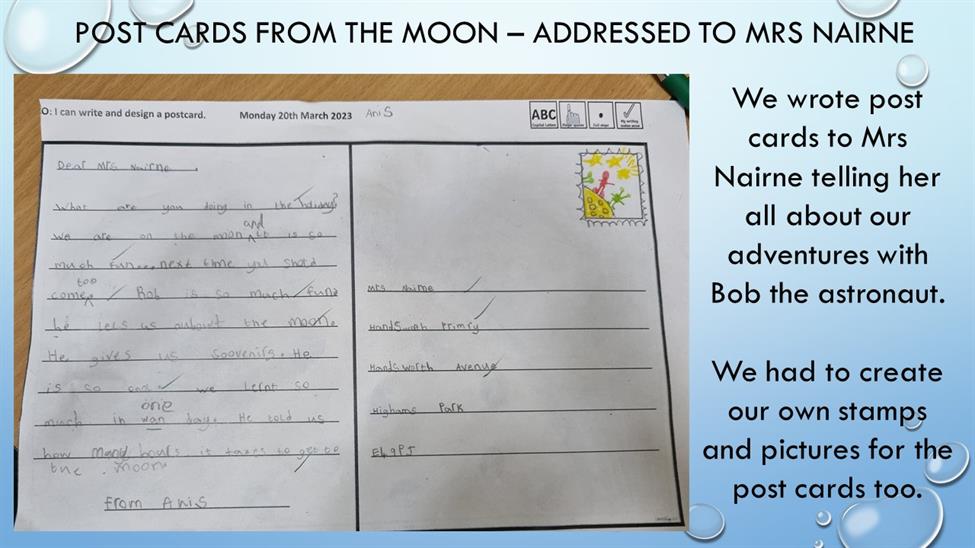 POST CARDS FROM THE MOON – ADDRESSED TO MRS NAIRNE
O: I can write and design a postcard.
Monday 20th March 2023
Ani S
ABC
Capital Letters
Finger spaces
Full stops
Dear Mrs Nairne
What are you doing in the holidays?
and
We are on the moon it is so
much fun...next time you should
too
come Bob is so much fun
he tells us about the moon.
He gives us soovenirs. He
is so we lernt so
one
much in wan day. He told us
how many hours it takes to get to
the moon
from Ani S
Mrs Nairne
Handsworth Primry
Handsworth Avenue
Highams Park
E4 9PJ
We wrote post
cards to Mrs
Nairne telling her
all about our
adventures with
Bob the astronaut.
We had to create
our own stamps
and pictures for the
post cards too.